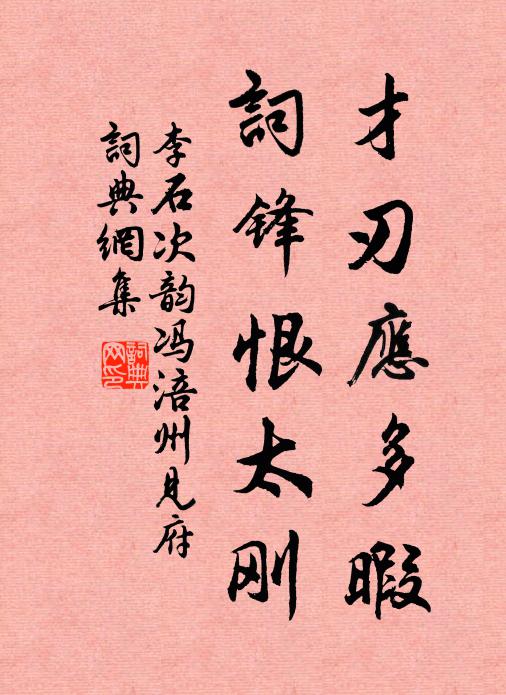 才刃應多暇
詞锋恨太刚
李石次韵冯涪州见府
詞典網集
詞典網印